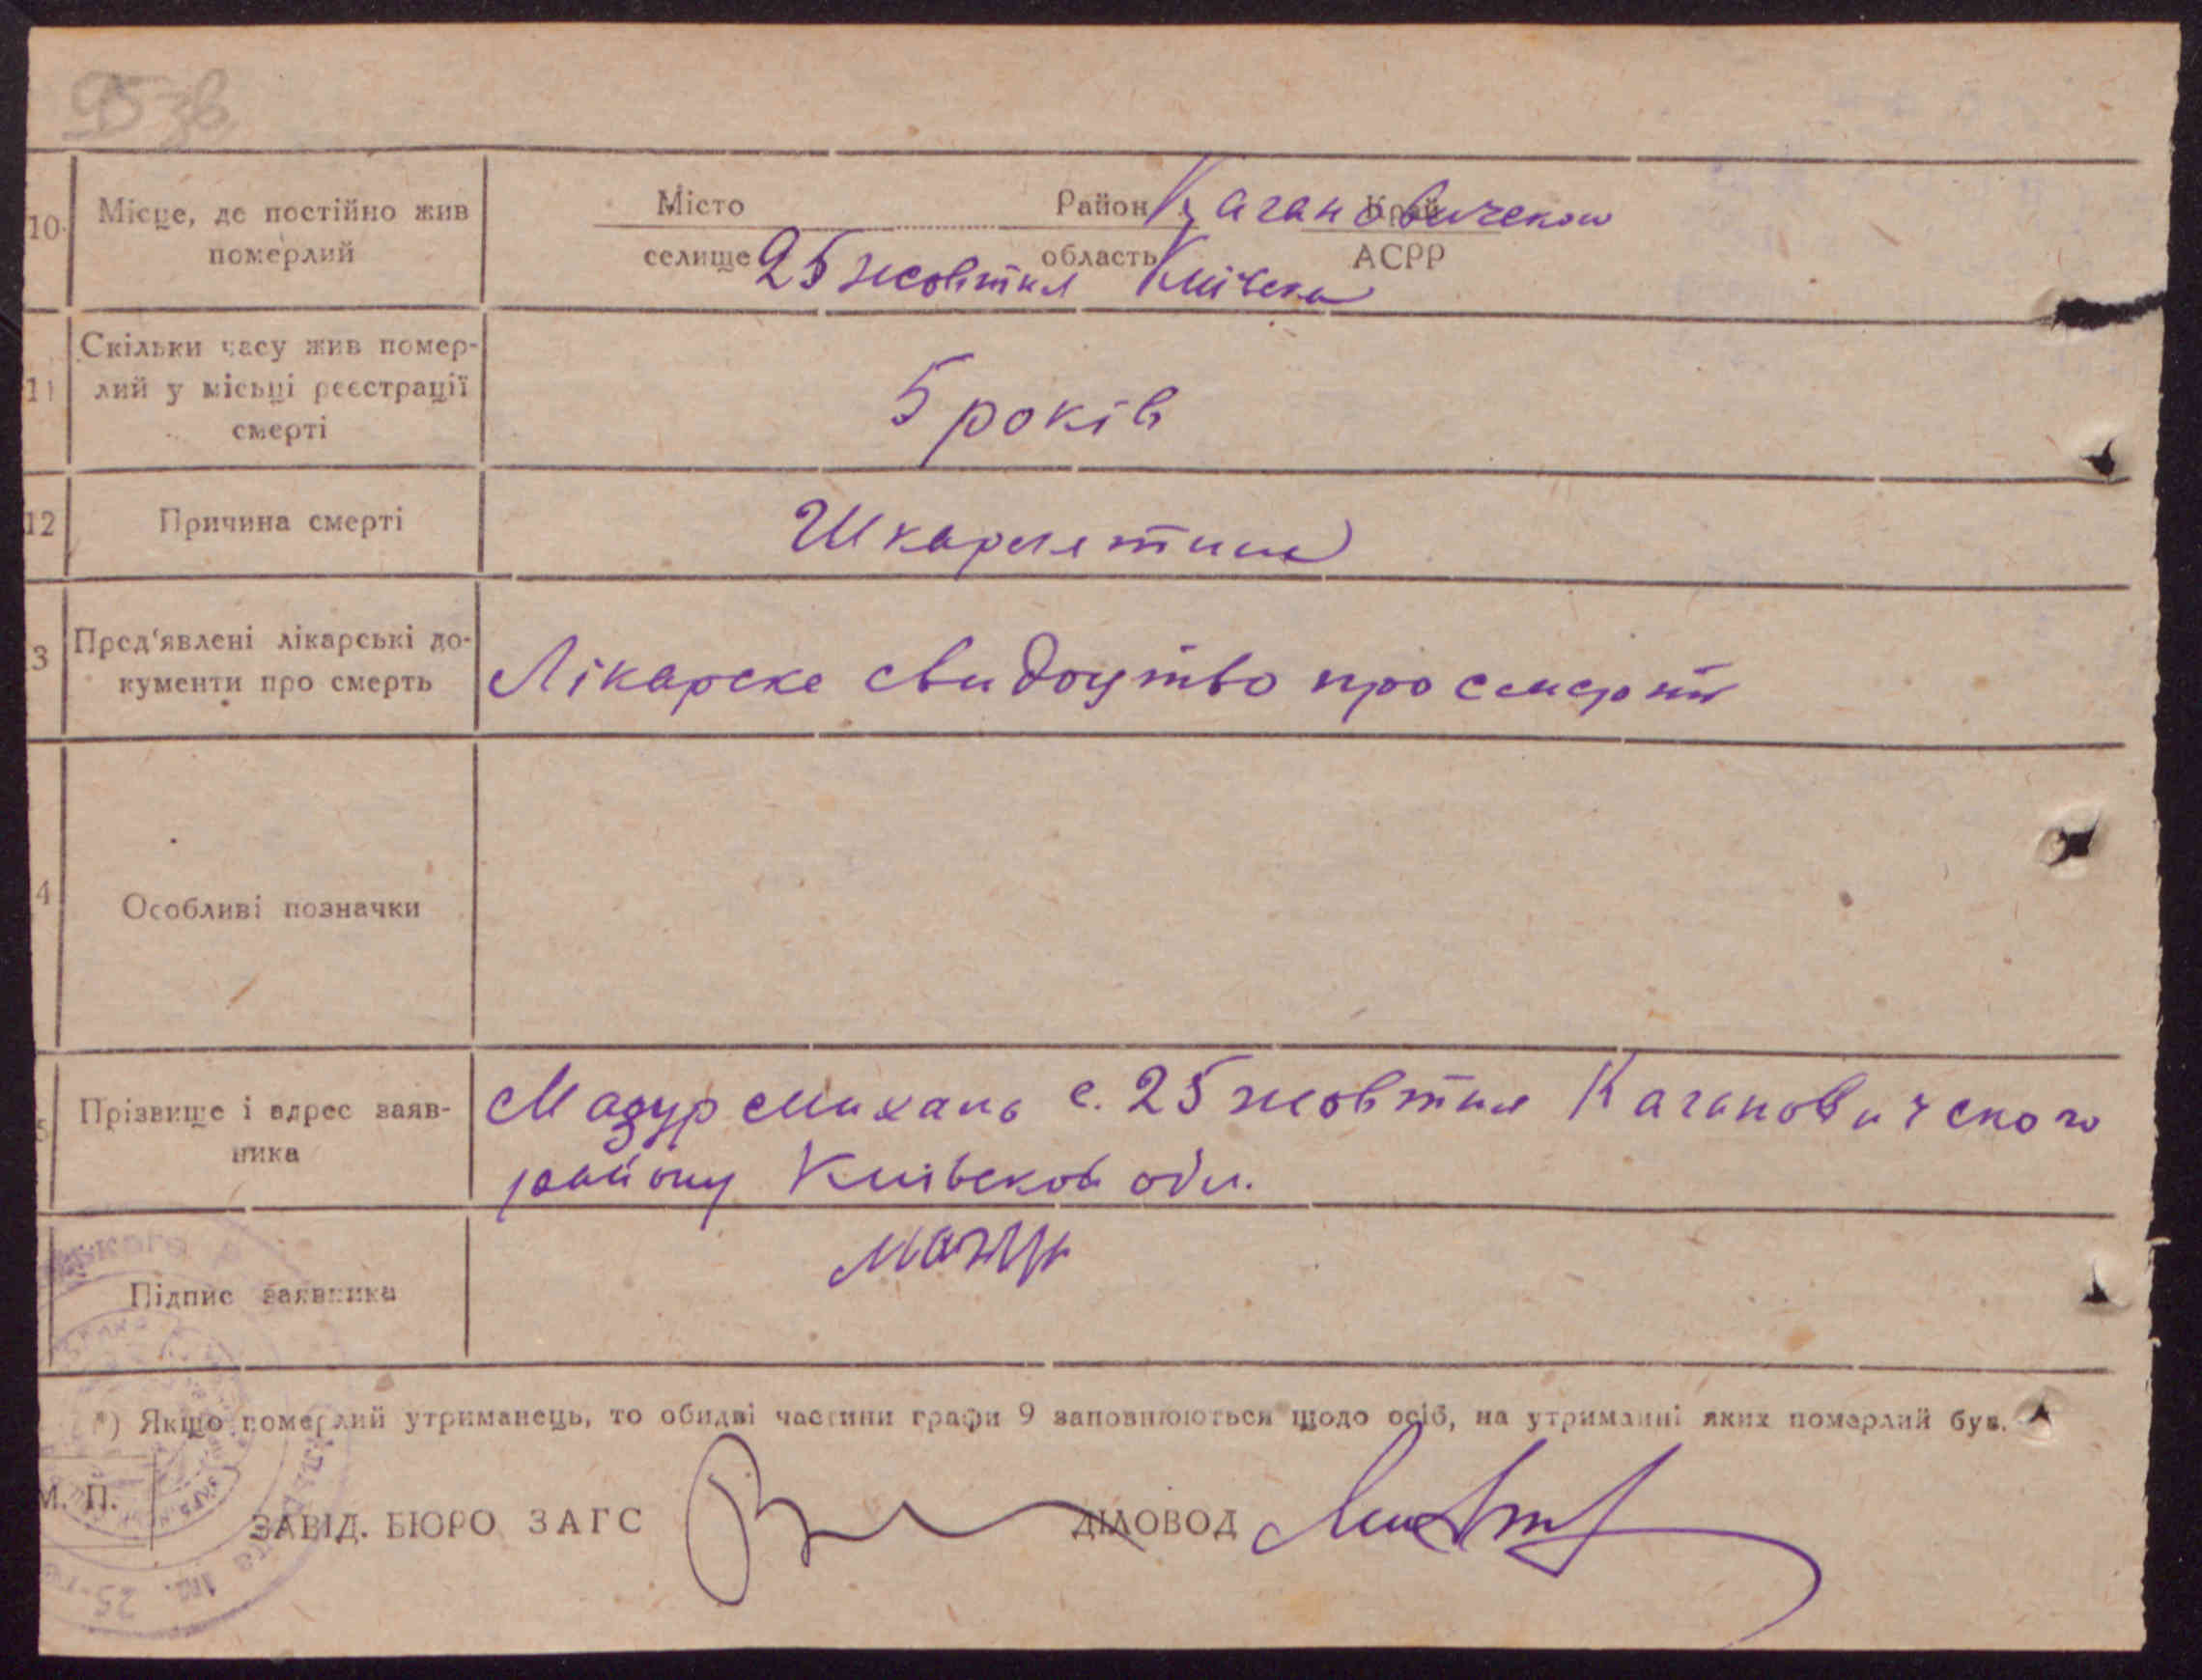 95 зв
10. Місце, де постійно жив померлий
Місто Район Кагановическою Край
селище 25 жовтня область Київска АСРР
11 Скільки часу жив помер-
лий у місьці реєстрації
смерті
5 років
12 Причина смерті
Шкарлятина
3 Пред'явлені лікарські до-
кументи про смерть
Лікарске свидоцтво про смерть
4 Особливі позначки
5 Прізвище і адрес заяв-
ника
Мазур Михаил с. 25 жовтня Кагановичского
району Київскої обл.
Підпис заявника
Мазур
*) Якщо померлий утриманець, то обидві частини графи 9 заповнюються щодо осіб, на утриманні яких померлий був.
М. П.
ЗАВІД. БЮРО ЗАГС ДІЛОВОД